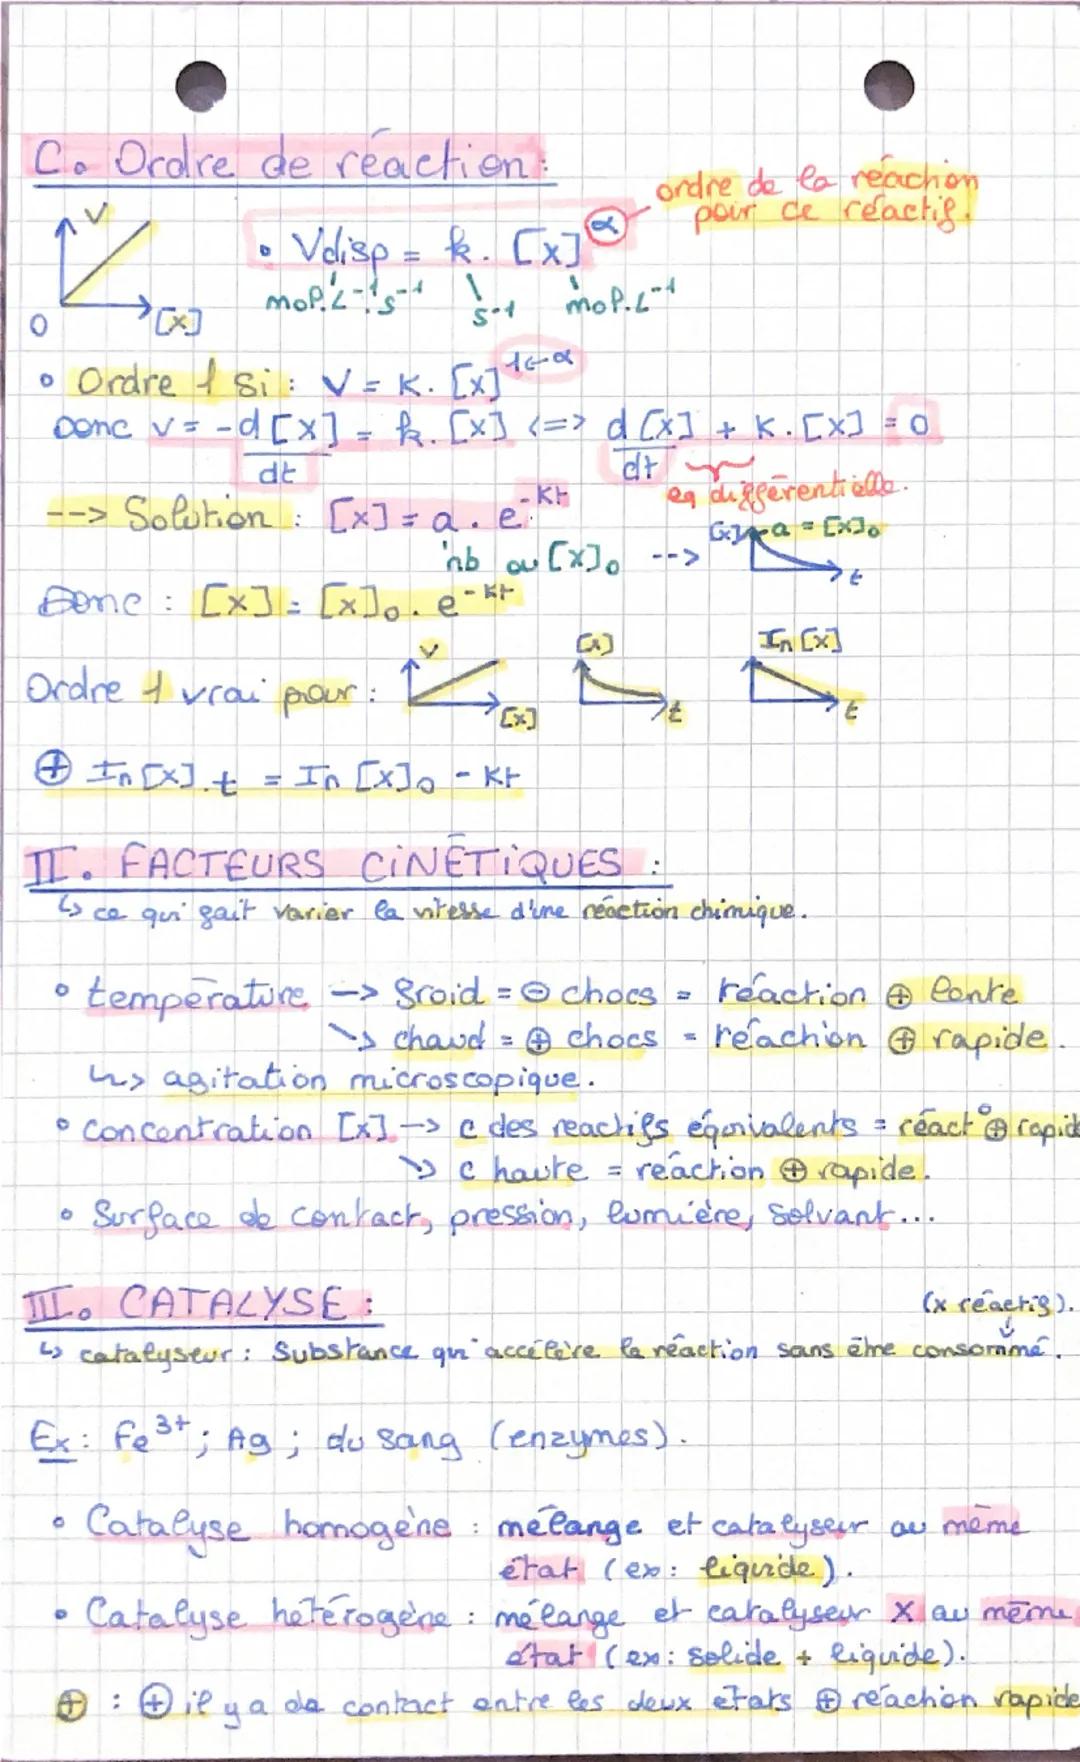 C. Ordre de réaction :
ordre de la réaction
pour ce réactif.
V
[x]
0
• Vdisp = k. [x]^α
mol.L⁻¹.s⁻¹ s⁻¹ mol.L⁻¹
• Ordre 1 si : V = K. [x]^1←α
Donc v = -d[x]/dt = k. [x] <=> d[x]/dt + K. [x] = 0
eq différentielle.
--> Solution : [x] = a. e^-Kt
nb ou [x]₀ -->
[x] a = [x]₀
t
Donc : [x] = [x]₀. e^-Kt
Ordre 1 vrai pour :
V
[x]
[x]
t
In [x]
t
⊕ In [x].t = In [x]₀ - Kt
II. FACTEURS CINÉTIQUES :
↳ ce qui fait varier la vitesse d'une réaction chimique.
• température -> froid = ⊖ chocs = réaction ⊕ lente
↘ chaud = ⊕ chocs = réaction ⊕ rapide.
↳> agitation microscopique.
• concentration [x] -> c des reactifs équivalents = réact° ⊕ rapid
↘ c haute = réaction ⊕ rapide.
• Surface de contact, pression, lumière, solvant...
III. CATALYSE :
(x réactif).
↓
↳ catalyseur : Substance qui accélère la réaction sans être consommé.
Ex : Fe³⁺ ; Ag ; du sang (enzymes).
• Catalyse homogène : mélange et catalyseur au même
état (ex : liquide).
• Catalyse hétérogène : mélange et catalyseur X au même
état (ex : solide + liquide).
⊕ : ⊕ il y a de contact entre les deux états ⊕ réaction rapide